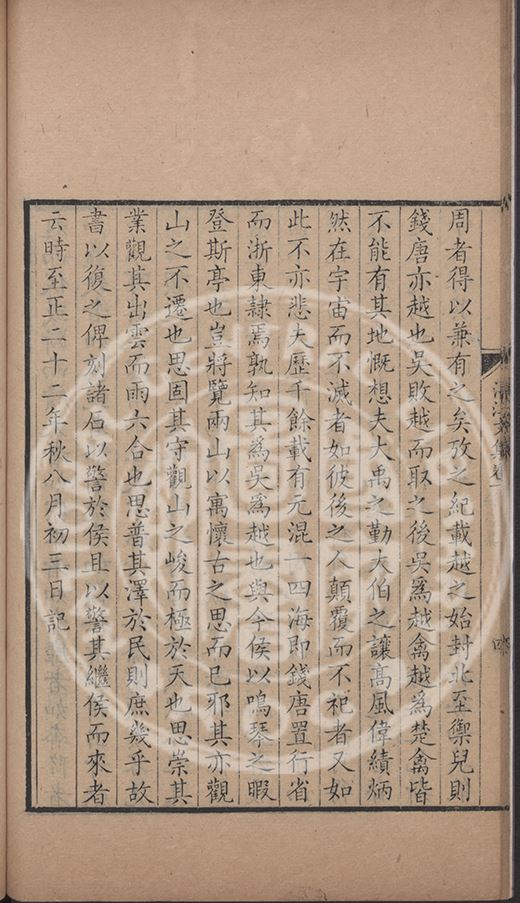 周者得以兼有之矣攷之紀載越之始封北至禦兒則
錢唐亦越也吳敗越而取之後吳爲越禽越爲楚禽皆
不能有其地慨想夫大禹之勤大伯之讓高風偉績炳
然在宇宙而不滅者如彼後之人顛覆而不祀者又如
此不亦悲夫歷千餘載有元混一四海即錢唐置行省
而浙東隷焉孰知其爲吳爲越也與今侯以鳴琴之暇
登斯亭也豈將覽兩山以寓懷古之思而已邪其亦觀
山之不遷也思固其守觀山之峻而極於天也思崇其
業觀其出雲而雨六合也思普其澤於民則庶幾乎故
書以復之俾刻諸石以警於侯且以警其繼侯而來者
云時至正二十二年秋八月初三日記